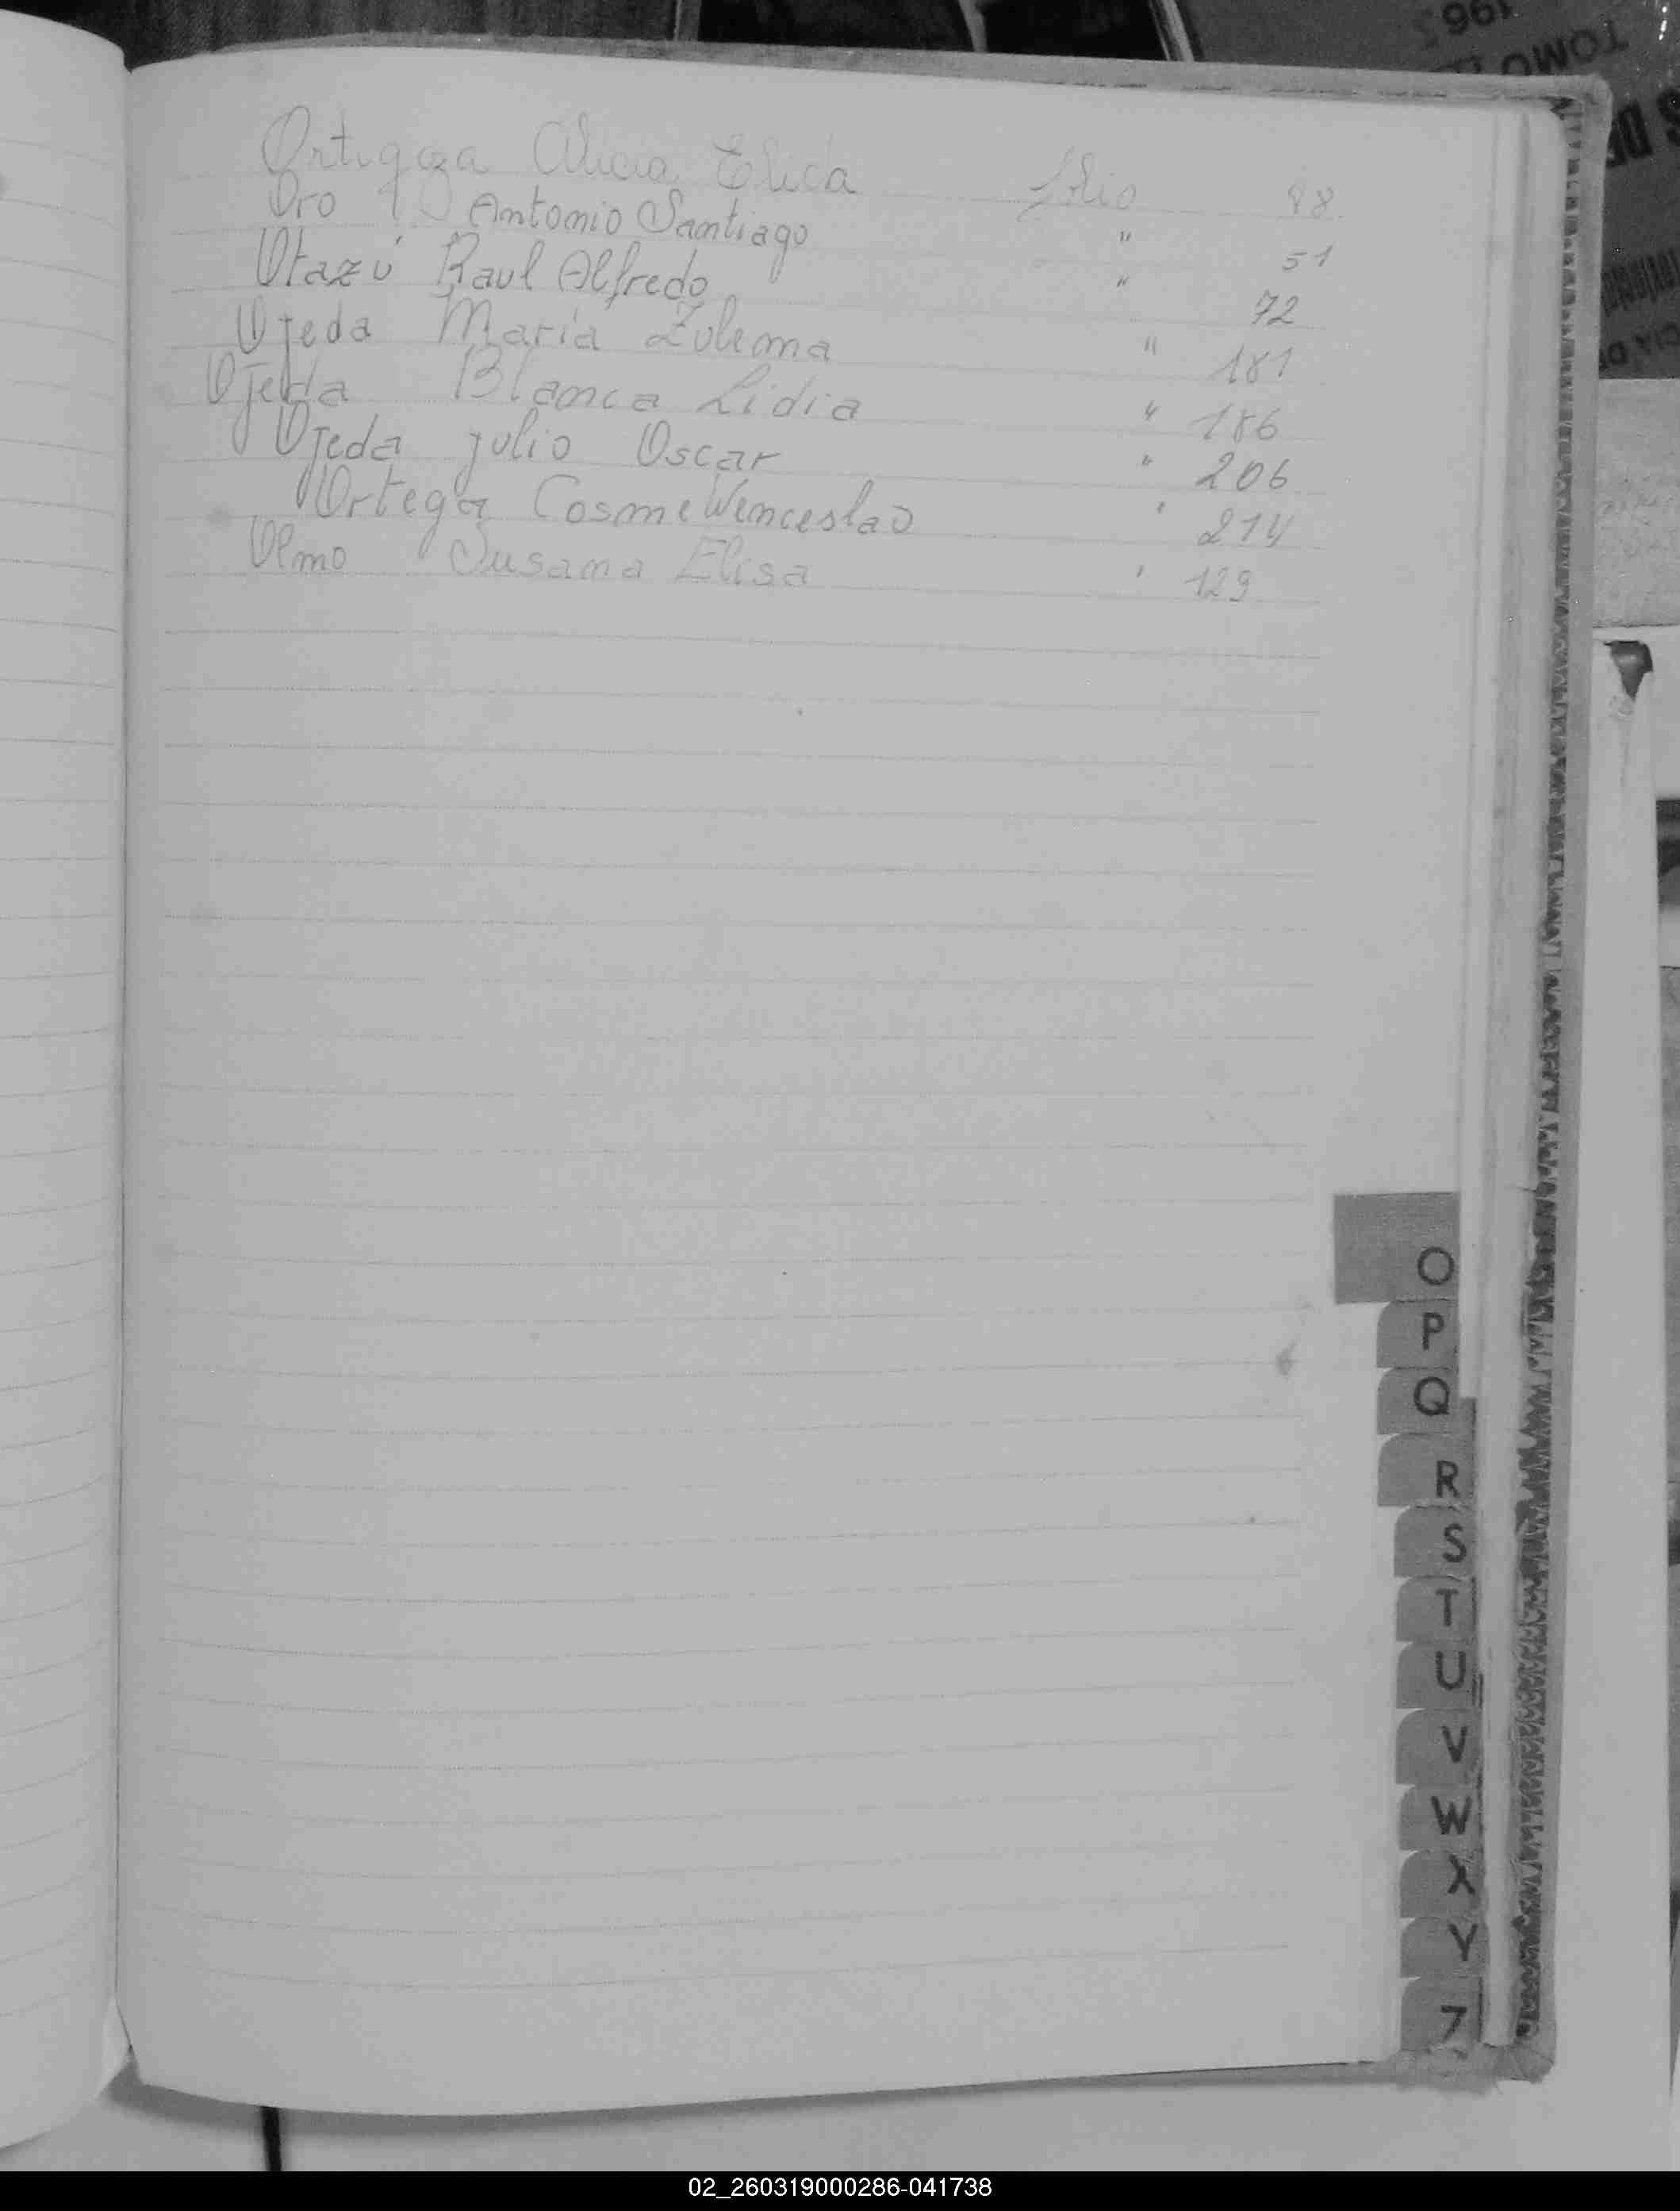 Ortigoza Alicia Elida folio 48
Oro Antonio Santiago " 51
Otazú Raul Alfredo " 72
Ojeda María Zulema " 181
Ojeda Blanca Lidia " 186
Ojeda julio Oscar " 206
Ortega Cosme Wenceslao " 214
Olmo Susana Elisa " 129
O
P
Q
R
S
T
U
V
W
X
Y
Z
TOMO
02_260319000286-041738